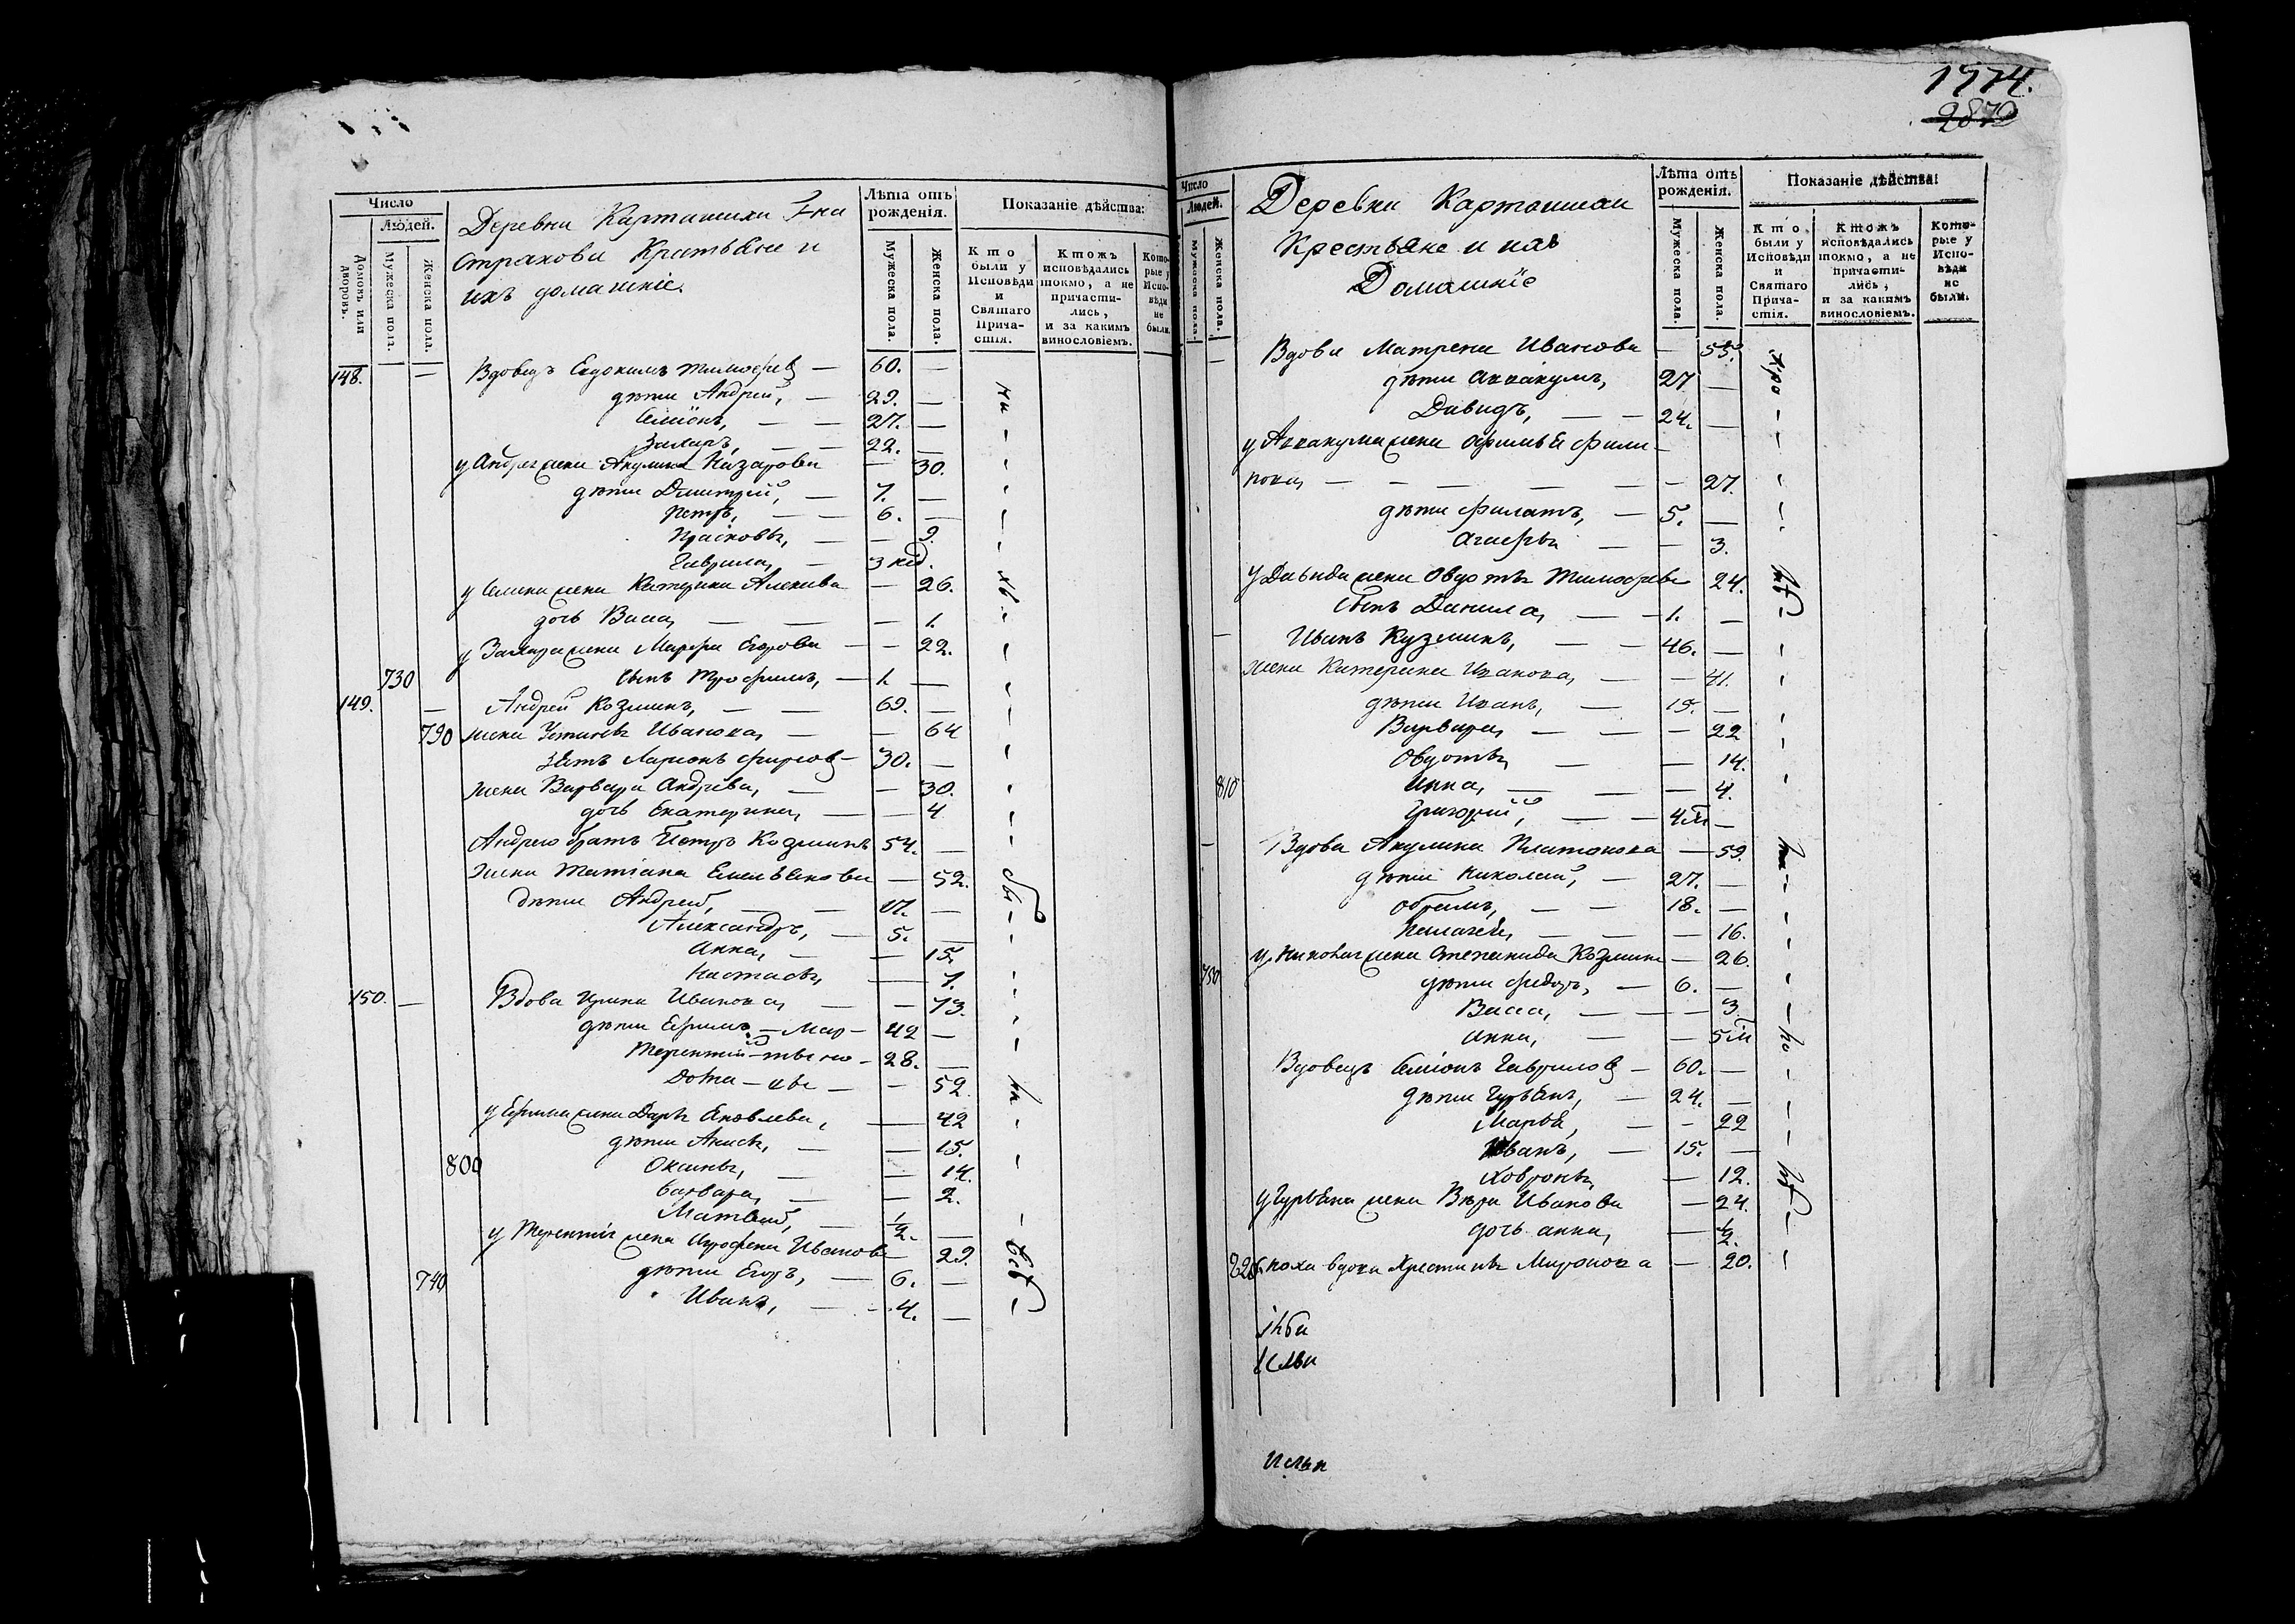 Число
Людей.
Домовъ или дворовъ.
Мужеска пола.
Женска пола.
Деревни Карташихи Г-на
Страхова Крестьяне и
ихъ домашніе.
Лѣта отъ рожденія.
Мужеска пола.
Женска пола.
Показаніе дѣйства:
Кто были у Исповѣди и Святаго Причастія.
Ктожъ исповѣдались токмо, а не причастились, и за какимъ винословіемъ.
Которые у Исповѣди не были.
148. — Вдовецъ Евдокимъ Тимофеев — 60. —
дѣти Андрей, — 29. —
Семіонъ, — — 27. —
Захаръ, — — 22. —
у Андрея жена Акулина Назарова — 30.
дѣти Дмитрей, — 7. —
Петръ, — — 6. —
Прасковья, — — 9.
Гаврила, — 3 нед.
у Семіона жена Катерина — 26.
дочь Васса, — — — 1.
у Захара жена Марфа Егорова — — 22.
730 сынъ Трофимъ, — 1. —
149. — Андрей Козминъ, — — 69. —
790 жена Устинья Иванова, — — 64
зять Ларіонъ — 30. —
жена Варвара Андреева, — — 30.
дочь Екатерина, — — 4
Андрею братъ Петръ Козминъ 54. —
жена Татіана Емельянова — 52.
дѣти Андрей, — — 17. —
Александръ, — 5. —
Анна, — — 15.
Настасья, — 7.
150. — Вдова Ирина Иванова, — — 73.
дѣти Ефимъ — Мар — 42 —
Терентій — тьяно — 28. —
Домна — ова — — 52
у Ефима жена Дарья Яковлева, — 42
дѣти Анисья, — — 15.
800 Оксинья, — — 14.
Варвара, — — 2.
Матвей, — ½. —
у Терентія жена Аграфена Иванова — 29.
дѣти Егоръ, — 6. —
740 Иванъ, — 4. —
1774.
2872
Число
Людей.
Мужеска пола.
Женска пола.
Деревни Карташихи
Крестьяне и ихъ
Домашніе
Лѣта отъ рожденія.
Мужеска пола.
Женска пола.
Показаніе дѣйства:
Кто были у Исповѣди и Святаго Причастія.
Ктожъ исповѣдались токмо, а не причастились, и за какимъ винословіемъ.
Которые у Исповѣди не были.
— Вдова Матрена Иванова — 53.
дѣти Аввакумъ, 27 —
Давидъ, — — 24. —
у Аввакума жена Офимья Фили-
пова, — — — — — 27.
дѣти Филатъ, — 5. —
Агафья — — 3.
у Давида жена Овдотья Тимофеева 24.
сынъ Данила, — — 1. —
— Иванъ Кузминъ, — — 46. —
жена Катерина Иванова, — — 41.
дѣти Иванъ, — 15. —
Варвара, — — — 22
Овдотья, — — 14.
810 Анна, — — — 4.
Григорей, — — 4 м —
— Вдова Акулина Платонова — 59.
дѣти Николай, — 27. —
— — 18. —
Пелагея, — — — 16.
у Николая жена Степанида Козмина — 26.
750 дѣти Федоръ, — 6. —
Васса, — — — 3
Анна, — — 5 м
Вдовецъ Семіонъ Гаврилов — 60. —
дѣти Гурьянъ, — 24. —
Марья, — — 22
Иванъ, — 15. —
Ховронья, — 12.
у Гурьяна жена Вѣра Иванова — 24.
дочь Анна, — ½.
вдова Христинья Миронова — 20.